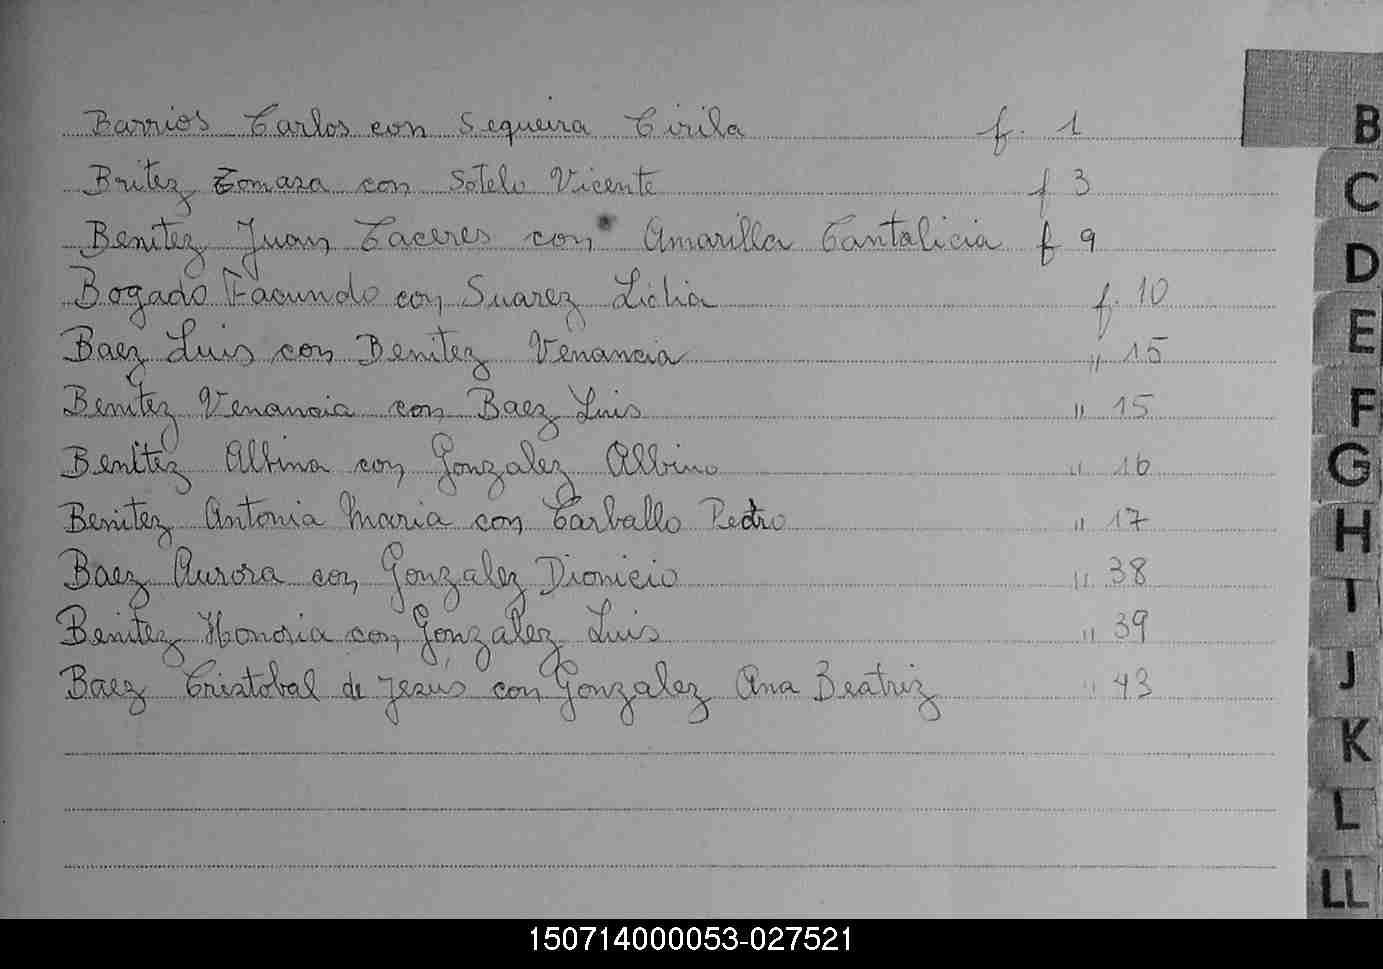 Barrios Carlos con Sequeira Cirila f. 1
Britez Tomasa con Sotelo Vicente f 3
Benitez Juan Caceres con Amarilla Cantalicia f 9
Bogado Facundo con Suarez Lidia f. 10
Baez Luis con Benitez Venancia " 15
Benitez Venancia con Baez Luis " 15
Benitez Albina con Gonzalez Albino " 16
Benitez Antonia Maria con Carballo Pedro " 17
Baez Aurora con Gonzalez Dionicio " 38
Benitez Honoria con Gonzalez Luis " 39
Baez Cristobal de Jesus con Gonzalez Ana Beatriz " 43
B
C
D
E
F
G
H
I
J
K
L
LL
150714000053-027521